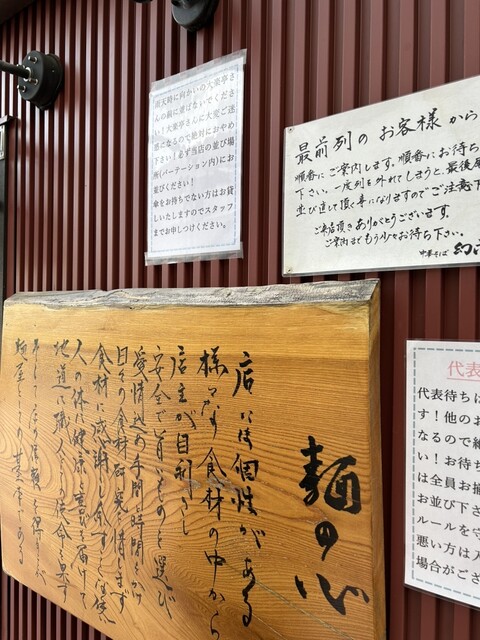 雨天時に向かいの大楽亭さ
んの前に並ばないでくださ
い！大楽亭さんに大変ご迷
惑になるので絶対におやめ
下さい！必ず当店の並び場
所(パーテーション内)にお
並びください！
傘をお持ちでない方はお貸
しいたしますのでスタッフ
までお申しつけください。
最前列のお客様から
順番にご案内します。順番にお待ち
下さい。一度列を外れてしまうと、最後尾
並び直して頂く事になりますのでご注意下
ご来店頂きありがとうございます。
ご案内までもう少々お待ち下さい。
中華そば 幻
麺の心
店には個性がある
様々な食材の中から
店主が目利きし
安全で旨いものを選び
愛情込め手間と時間をかけ
日々の食材研究を惜します
食材に感謝し余す
人の体に健康と喜びを届けて
地道に職人としての使命を果す
代表
代表待ちは
す！他のお
なるので絶
い！お待ち
は全員お揃
お並び下さ
ルールを守
悪い方は入
場合がござ